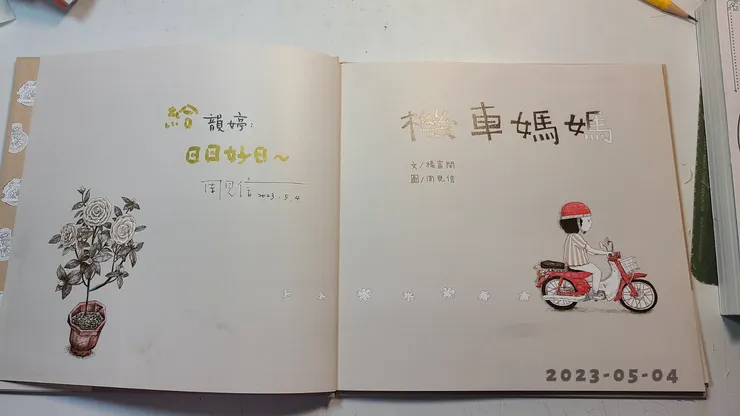 給 韻婷：
日日好日～
周見信 2023.5.4
機車媽媽
文/楊富閔
圖/周見信
2023-05-04